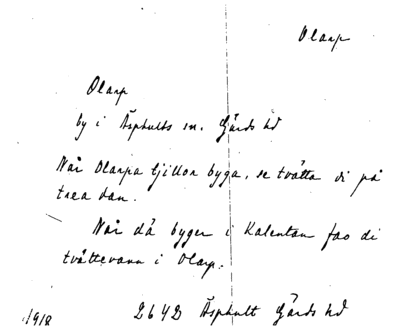 Olarp
Olarp
by i Äsphults sn. Gärds hd
När Olarpa tjillor byga, se tvätta di på
trea dan.
När då byger i Kalentan fao di
tvättevann i Olarp.
1918
2642 Äsphult Gärds hd